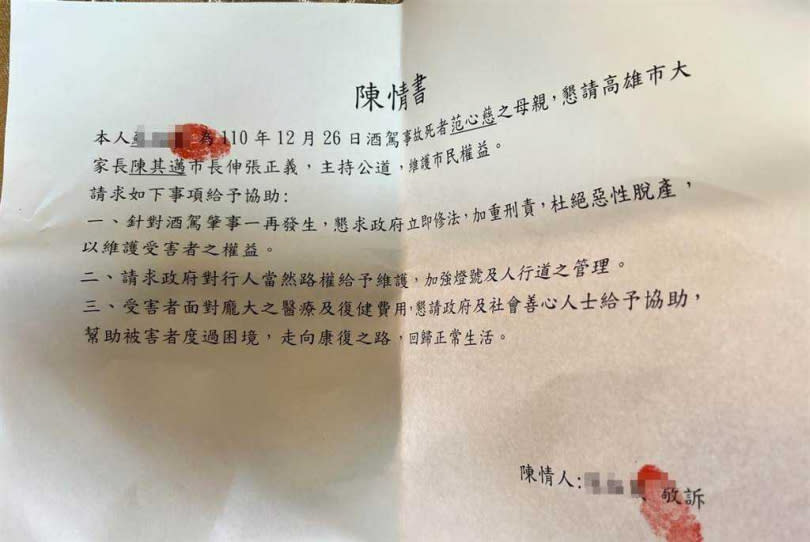 陳情書
本人 為110年12月26日酒駕事故死者范心慈之母親，懇請高雄市大
家長陳其邁市長伸張正義，主持公道，維護市民權益。
請求如下事項給予協助:
一、針對酒駕肇事一再發生，懇求政府立即修法，加重刑責，杜絕惡性脫產，
以維護受害者之權益。
二、請求政府對行人當然路權給予維護，加強燈號及人行道之管理。
三、受害者面對龐大之醫療及復健費用，懇請政府及社會善心人士給予協助，
幫助被害者度過困境，走向康復之路，回歸正常生活。
陳情人: 敬訴